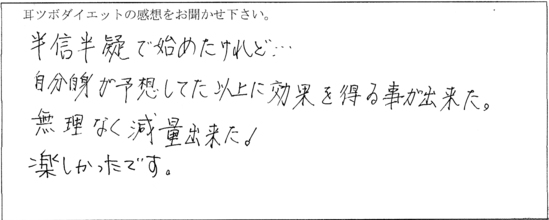 耳ツボダイエットの感想をお聞かせ下さい。
半信半疑で始めたけれど…
自分自身が予想してた以上に効果を得る事が出来た。
無理なく減量出来た!
楽しかったです。